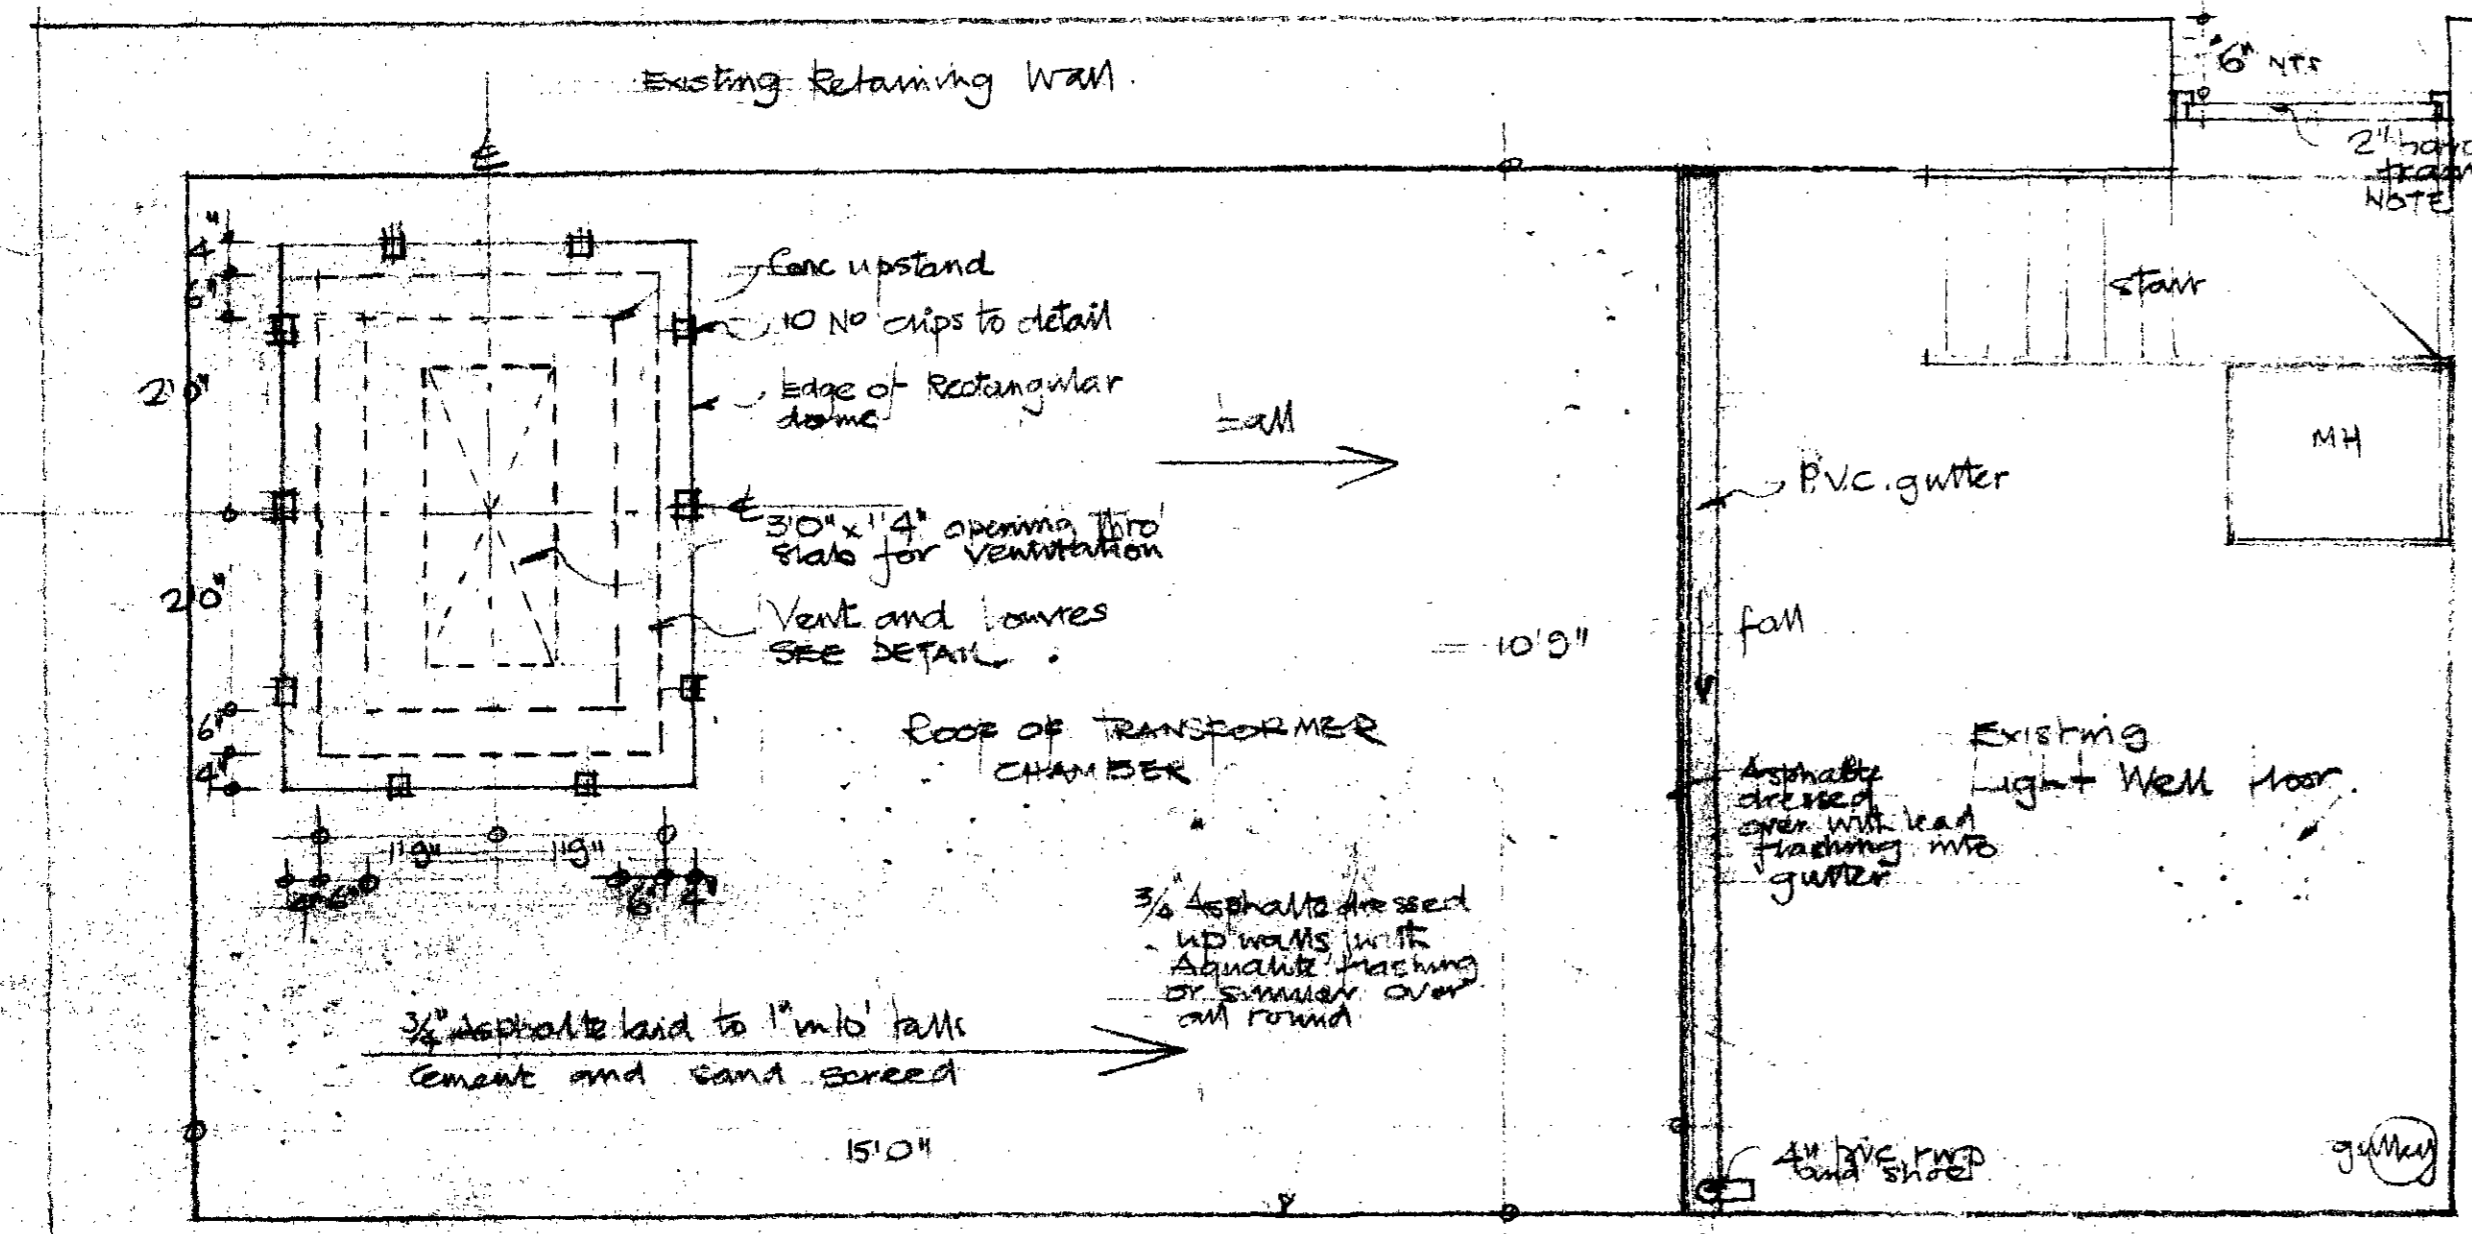 Existing Retaining Wall.
6" NTS
2" hand
NOTE
℄
4"
6"
2'0"
2'0"
6"
4"
Conc upstand
10 No clips to detail
Edge of Rectangular
dome
℄
3'0" x 1'4" opening thro'
slab for ventilation
Vent and louvres
SEE DETAIL.
Fall
ROOF OF TRANSFORMER
CHAMBER
10'9"
1'9" 1'9"
4" 6" 6" 4"
3/4" Asphalte dressed
up walls with
Aqualite flashing
or similar over
all round
3/4" Asphalte laid to 1" in 10' falls
cement and sand screed
15'0"
stair
MH
P.V.C. gutter
fall
Existing
Light Well floor.
Asphalte
dressed
over with lead
flashing into
gutter
4" pvc rwp
and shoe
gulley